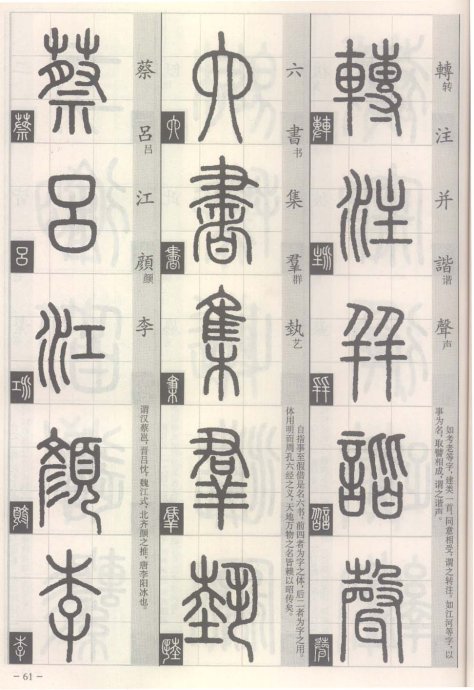 轉转 注 并 諧谐 聲声
如考老等字，建类一首，同意相受，谓之转注。如江河等字，以
事为名，取譬相成，谓之谐声。
轉注并諧聲
六 書书 集 羣群 埶艺
自指事至假借是名六书，前四者为字之体，后二者为字之用。
体用明而周孔六经之义，天地万物之名皆赖以昭传矣。
六書集羣埶
蔡 呂吕 江 顏颜 李
谓汉蔡邕，晋吕忱，魏江式，北齐颜之推，唐李阳冰也。
蔡呂江顏李
- 61 -